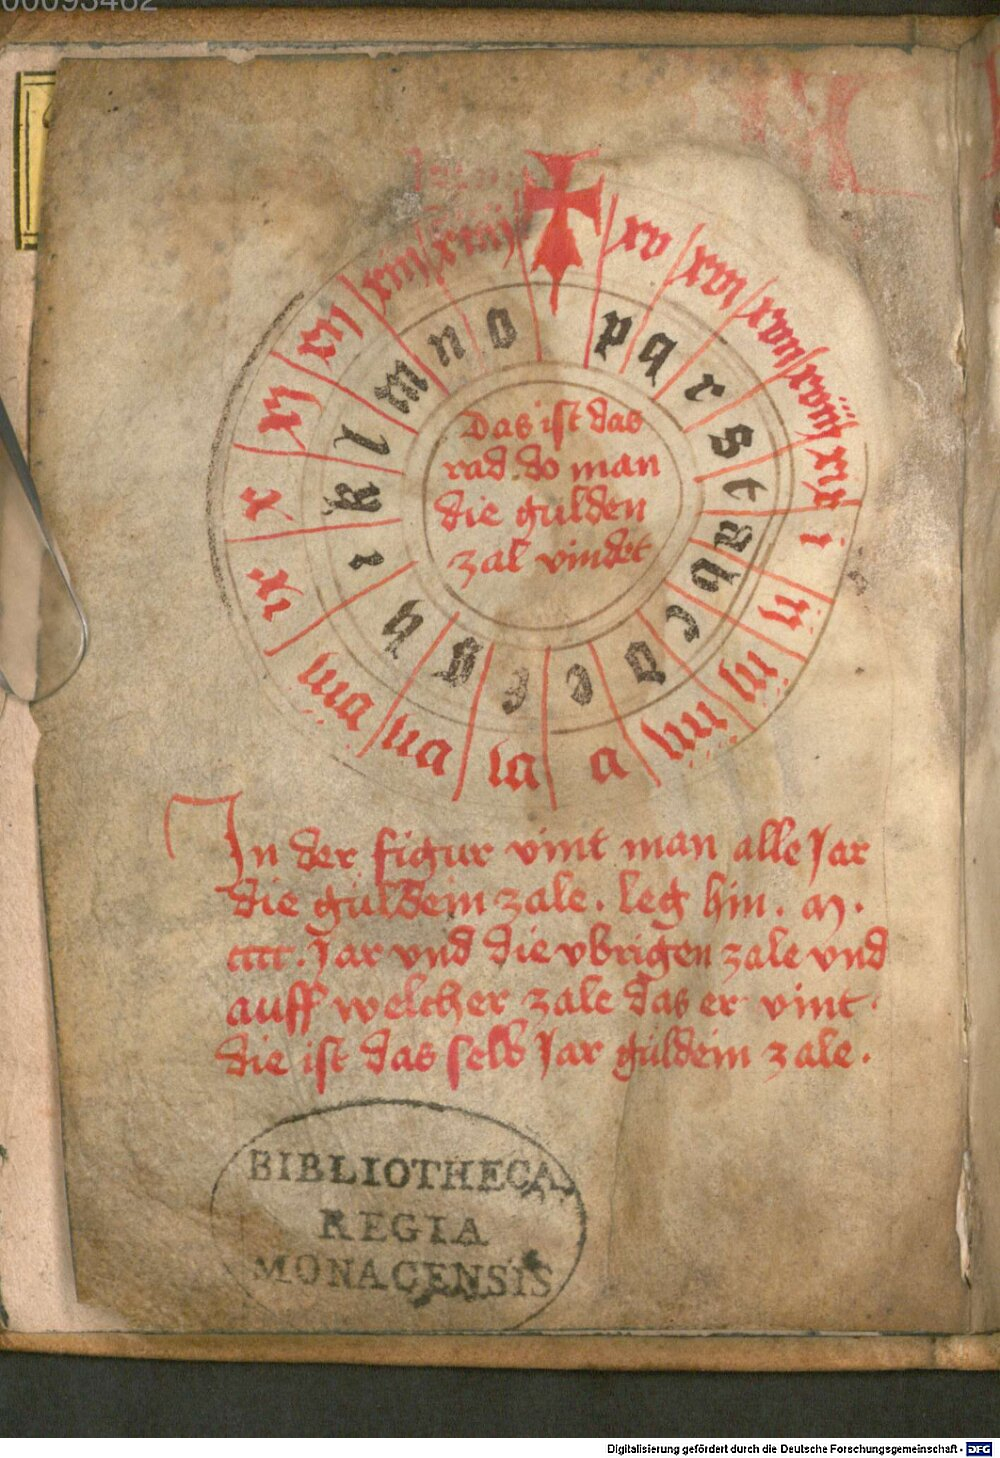 00093462
xv
xvi
xvii
xviii
xix
i
ii
iii
iiii
v
vi
vii
viii
ix
x
xi
xii
xiii
xiiii
p
q
r
s
t
a
b
c
d
e
f
g
h
i
k
l
m
n
o
Das ist das
rad do man
die gulden
zal vindet
In der figur vint man alle Jar
die guldein zale . leg hin . M .
cccc . Jar vnd die vbrigen zale vnd
auff welcher zale das er vint .
die ist das selb Jar guldein zale .
BIBLIOTHECA
REGIA
MONACENSIS
Digitalisierung gefördert durch die Deutsche Forschungsgemeinschaft - DFG